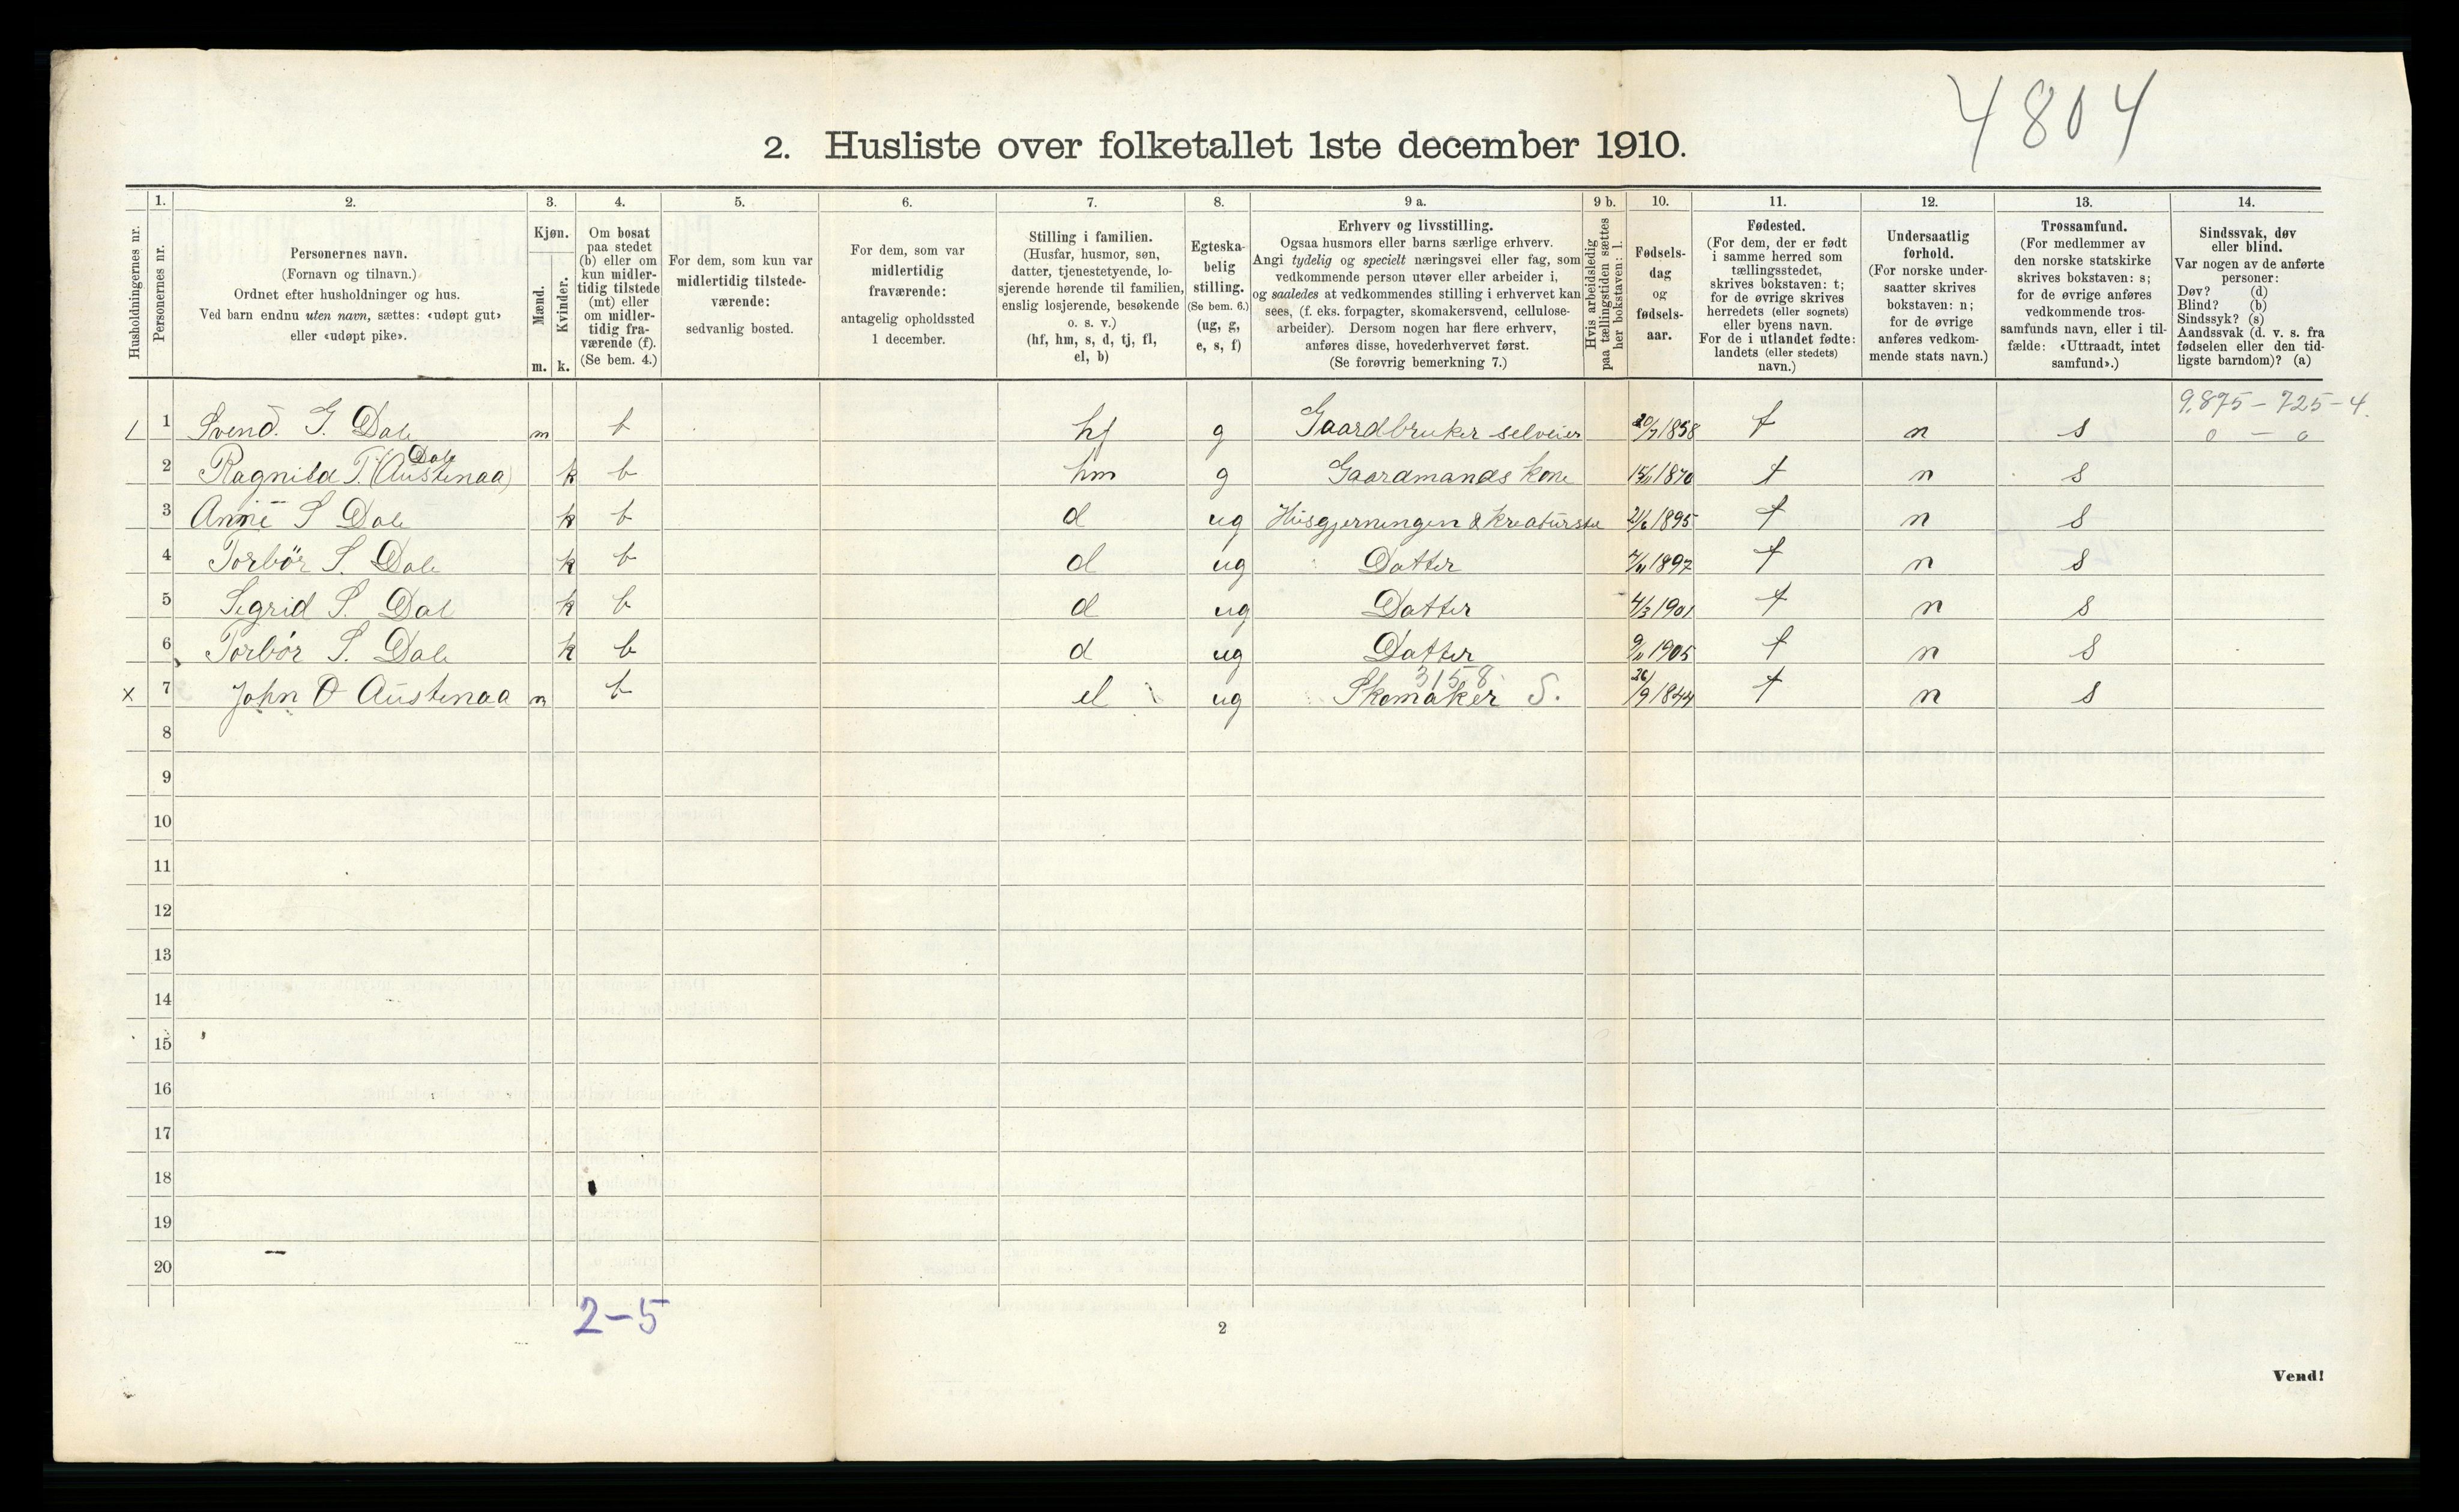 4804
2. Husliste over folketallet 1ste december 1910.
Husholdningernes nr.
1.
Personernes nr.
2.
Personernes navn.
(Fornavn og tilnavn.)
Ordnet efter husholdninger og hus.
Ved barn endnu uten navn, sættes: «udøpt gut»
eller «udøpt pike».
3.
Kjøn.
Mænd.
Kvinder.
m. k.
4.
Om bosat
paa stedet
(b) eller om
kun midler-
tidig tilstede
(mt) eller
om midler-
tidig fra-
værende (f).
(Se bem. 4.)
5.
For dem, som kun var
midlertidig tilstede-
værende:
sedvanlig bosted.
6.
For dem, som var
midlertidig
fraværende:
antagelig opholdssted
1 december.
7.
Stilling i familien.
(Husfar, husmor, søn,
datter, tjenestetyende, lo-
sjerende hørende til familien,
enslig losjerende, besøkende
o. s. v.)
(hf, hm, s, d, tj, fl,
el, b)
8.
Egteska-
belig
stilling.
(Se bem. 6.)
(ug, g,
e, s, f)
9 a.
Erhverv og livsstilling.
Ogsaa husmors eller barns særlige erhverv.
Angi tydelig og specielt næringsvei eller fag, som
vedkommende person utøver eller arbeider i,
og saaledes at vedkommendes stilling i erhvervet kan
sees, (f. eks. forpagter, skomakersvend, cellulose-
arbeider). Dersom nogen har flere erhverv,
anføres disse, hovederhvervet først.
(Se forøvrig bemerkning 7.)
9 b.
Hvis arbeidsledig
paa tællingstiden sættes
her bokstaven: l.
10.
Fødsels-
dag
og
fødsels-
aar.
11.
Fødested.
(For dem, der er født
i samme herred som
tællingsstedet,
skrives bokstaven: t;
for de øvrige skrives
herredets (eller sognets)
eller byens navn.
For de i utlandet fødte:
landets (eller stedets)
navn.)
12.
Undersaatlig
forhold.
(For norske under-
saatter skrives
bokstaven: n;
for de øvrige
anføres vedkom-
mende stats navn.)
13.
Trossamfund.
(For medlemmer av
den norske statskirke
skrives bokstaven: s;
for de øvrige anføres
vedkommende tros-
samfunds navn, eller i til-
fælde: «Uttraadt, intet
samfund».)
14.
Sindssvak, døv
eller blind.
Var nogen av de anførte
personer:
Døv? (d)
Blind? (b)
Sindssyk? (s)
Aandssvak (d. v. s. fra
fødselen eller den tid-
ligste barndom)? (a)
9.875 - 725 - 4.
1 Svend. G. Dale m b hf g Gaardbruker selveier 20/7 1858 t n s 0 - 0
Dale
2 Ragnild T. (Austenaa) k b hm g Gaardmands kone 1870 t n s
3 Anne S Dale k b d ug Husgjerningen & kreaturste 21/6 1895 t n s
4 Torbør S. Dale k b d ug Datter 1897 t n s
5 Sigrid S. Dale k b d ug Datter 4/3 1901 t n s
6 Torbør S. Dale k b d ug Datter 9/11 1905 t n s
3158
x 7 John O Austenaa m b el ug Skomaker S. 26/9 1844 t n s
8
9
10
11
12
13
14
15
16
17
18
19
20
2-5
2
Vend!